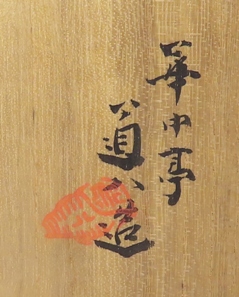 華中亭
道八造